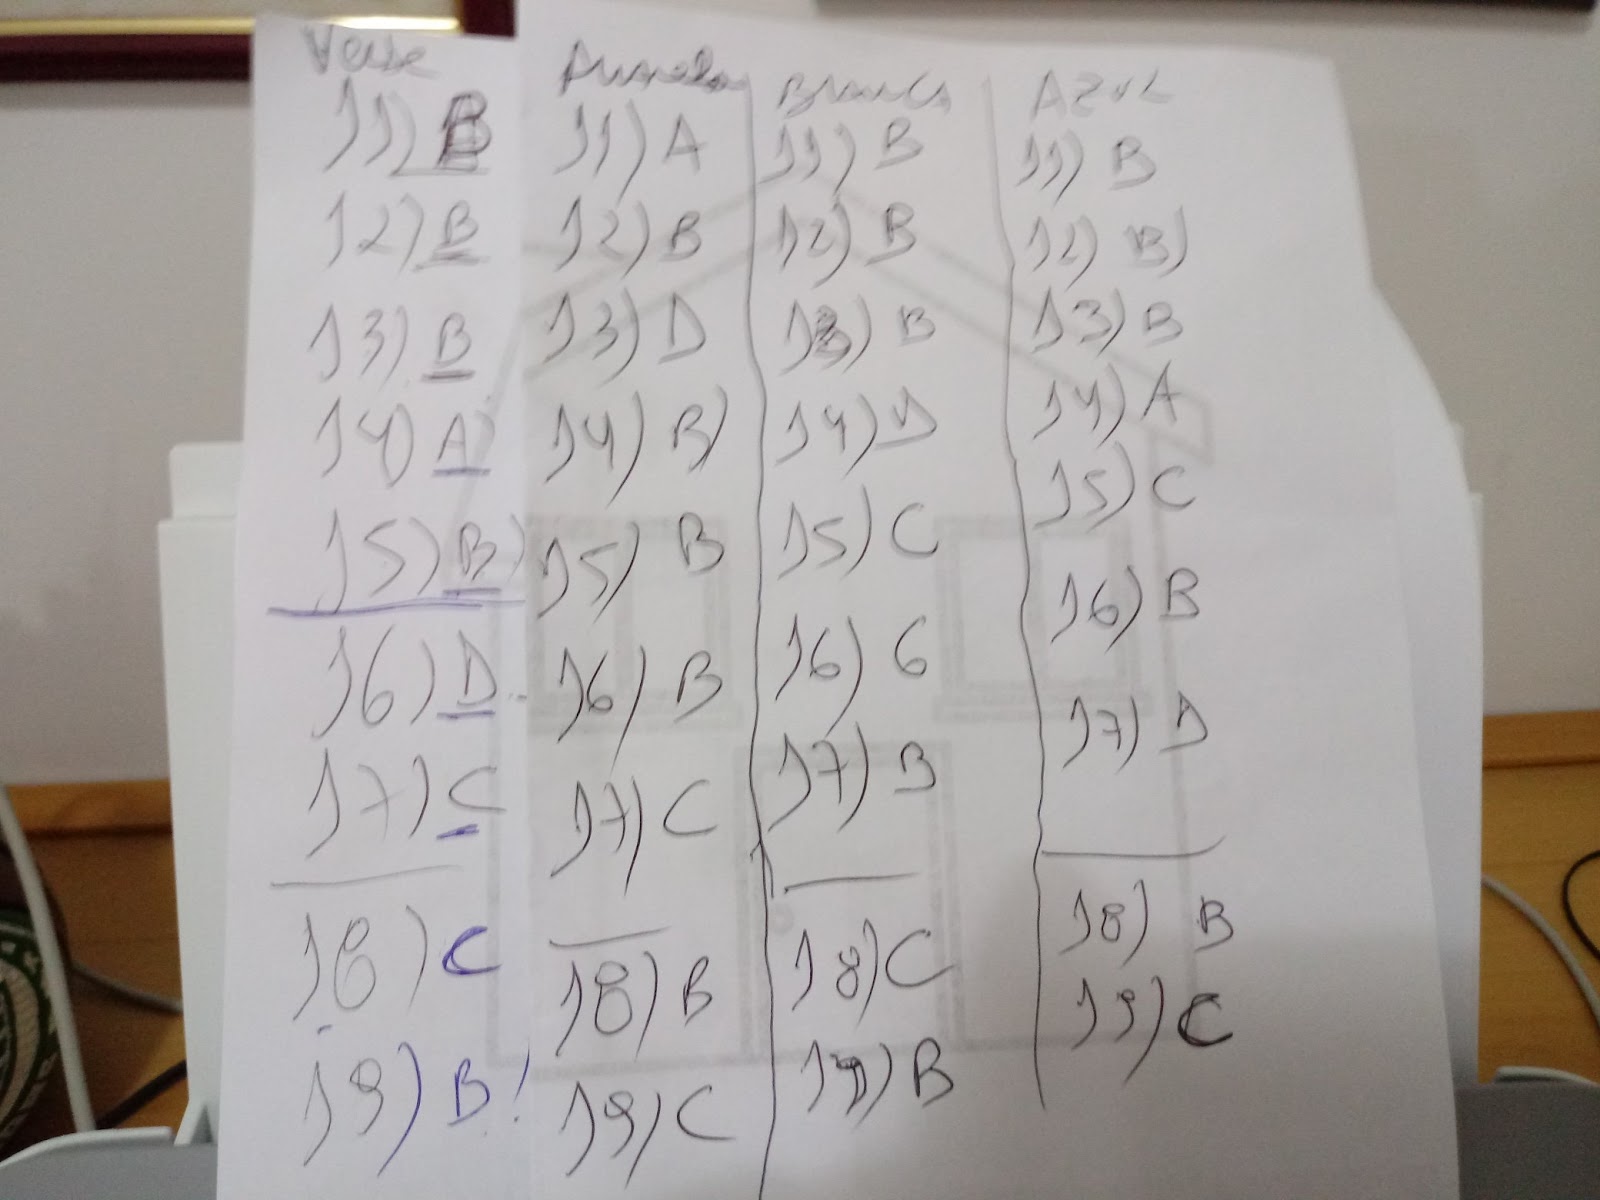 Verde Amarela Branca Azul
11) B 11) A 11) B 11) B
12) B 12) B 12) B 12) B)
13) B 13) D 13) B 13) B
14) A 14) B) 14) D 14) A
15) B) 15) B 15) C 15) C
16) D 16) B 16) C 16) B
17) C 17) C 17) B 17) D
18) C 18) B 18) C 18) B
19) B! 19) C 19) B 19) C